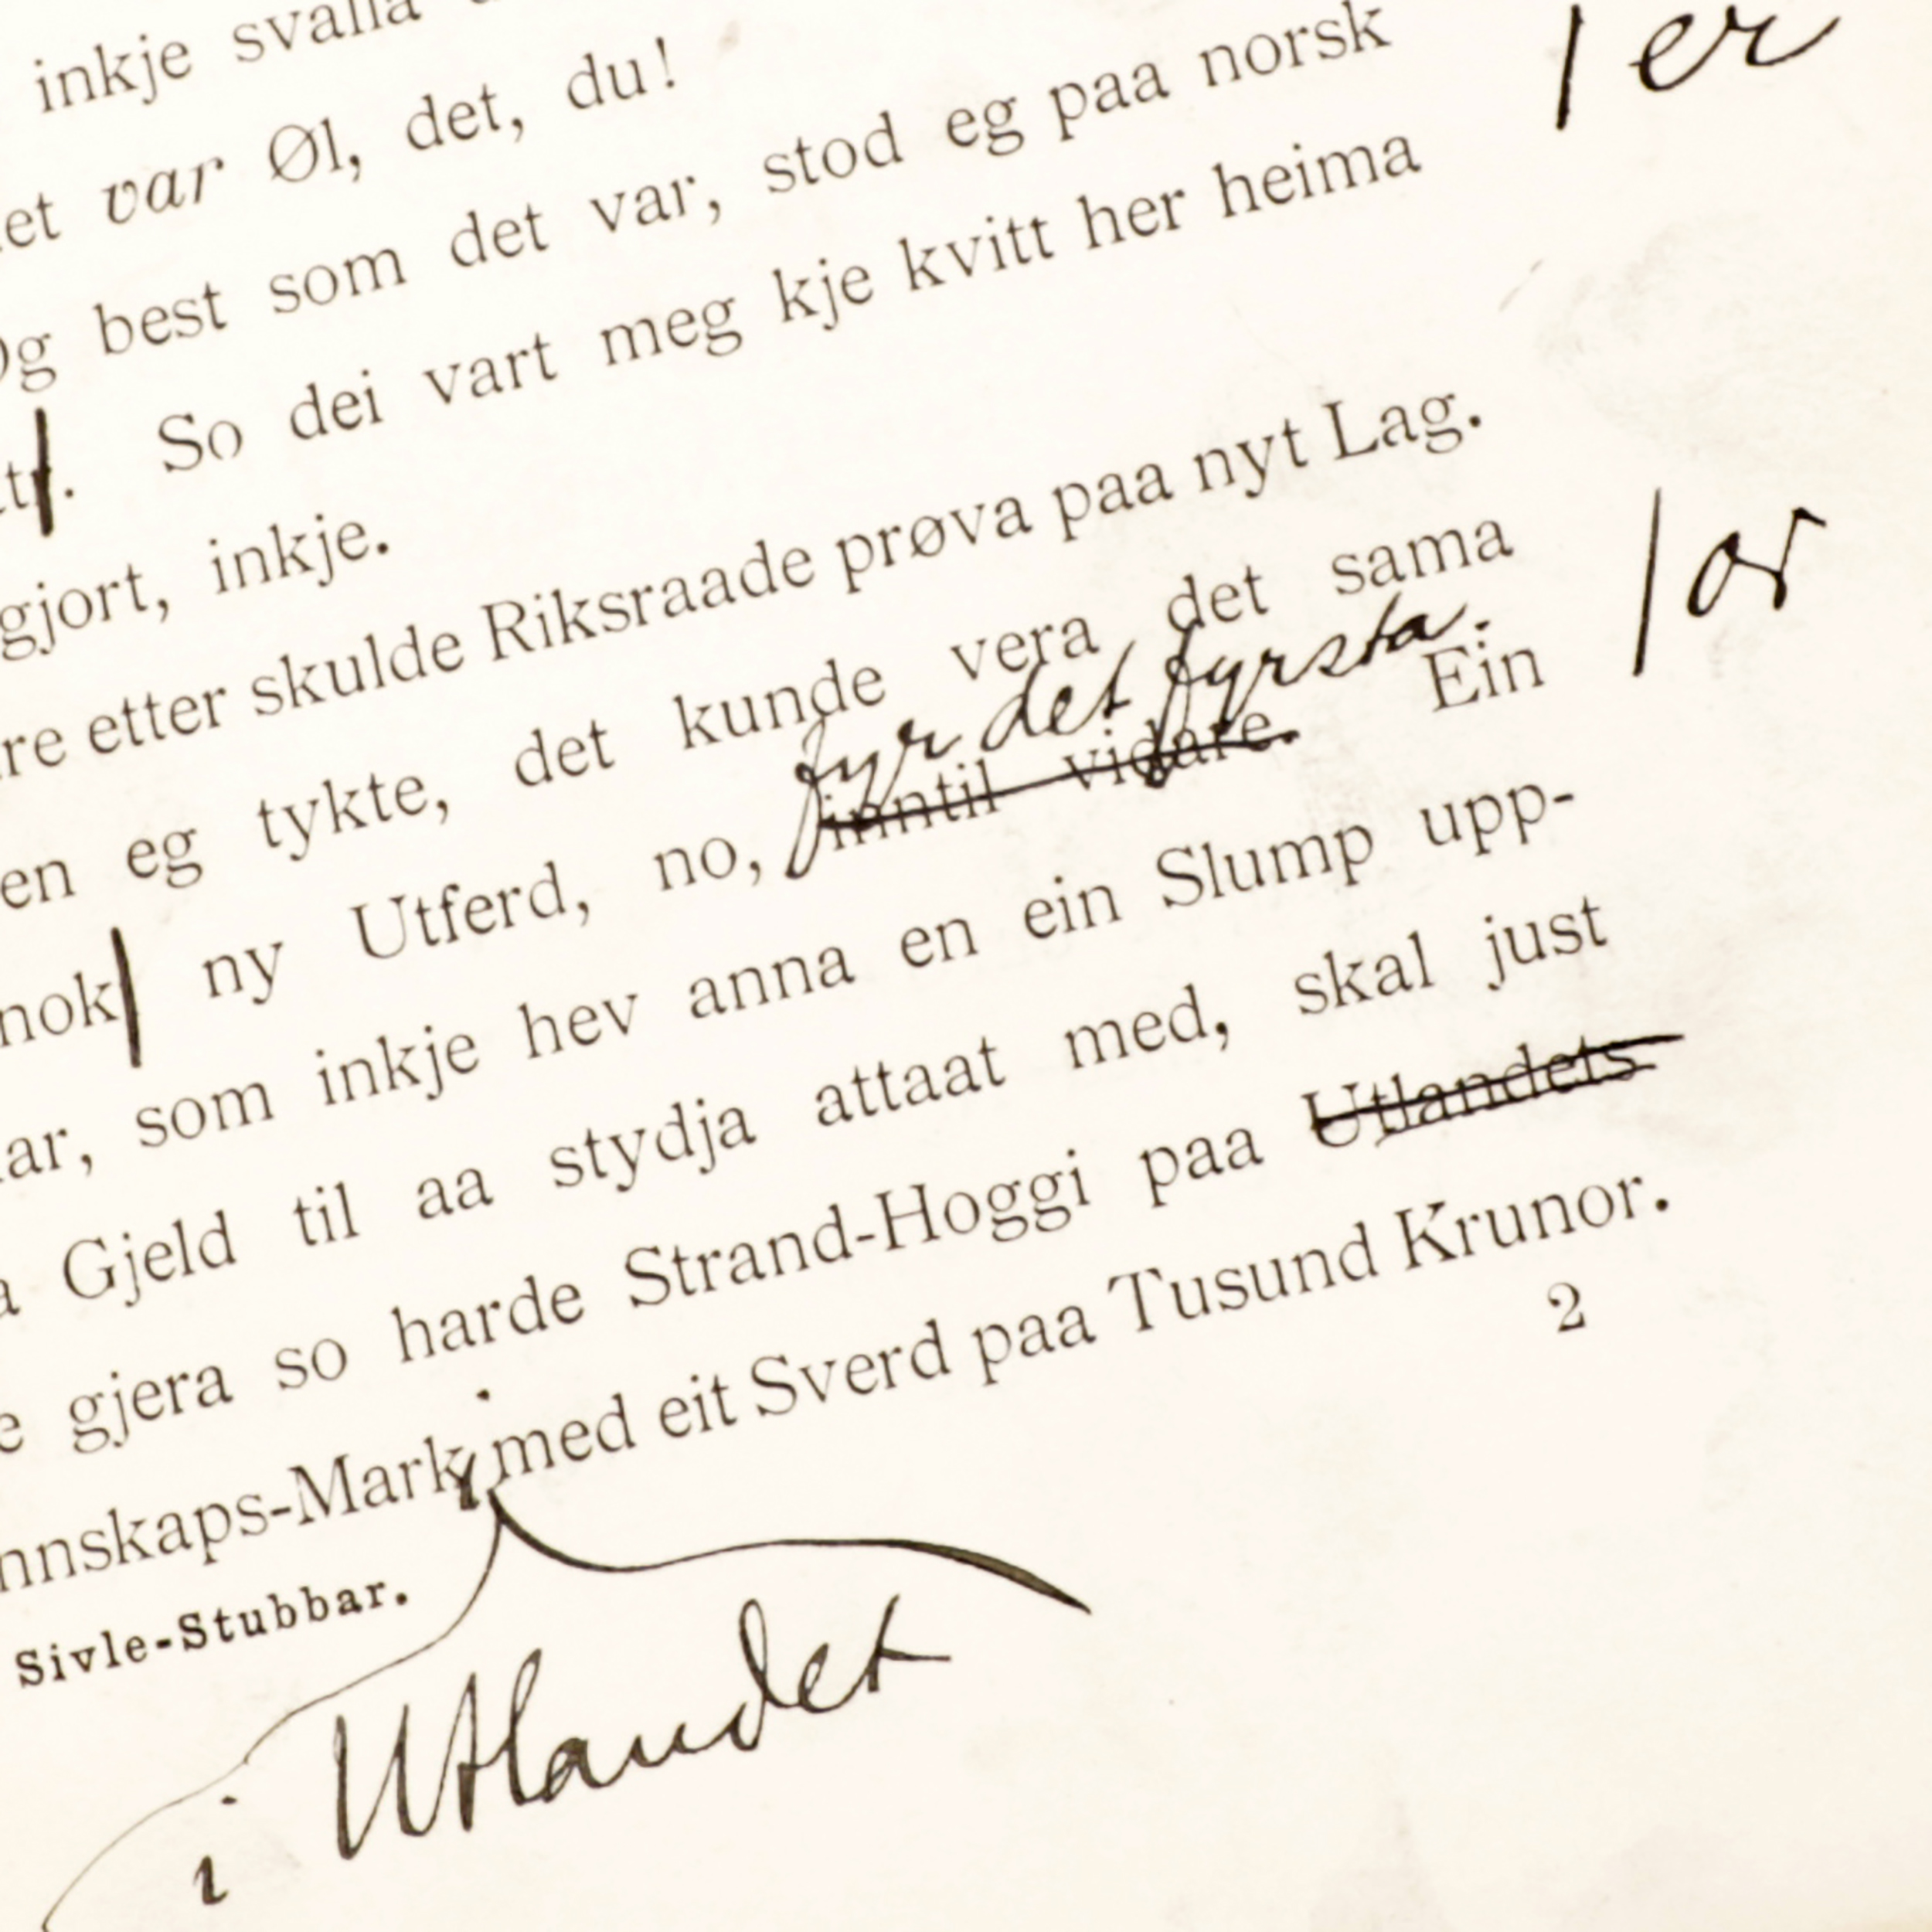 inkje svalla
et var Øl, det, du!
Og best som det var, stod eg paa norsk
So dei vart meg kje kvitt her heima
1 er
gjort, inkje.
re etter skulde Riksraade prøva paa nyt Lag.
en eg tykte, det kunde vera det sama
fyr det fyrsta.
nok ny Utferd, no, inntil vidare. Ein
ar, som inkje hev anna en ein Slump upp-
a Gjeld til aa stydja attaat med, skal just
e gjera so harde Strand-Hoggi paa Utlandets
nnskaps-Mark med eit Sverd paa Tusund Krunor.
Sivle-Stubbar.
2
i Utlandet